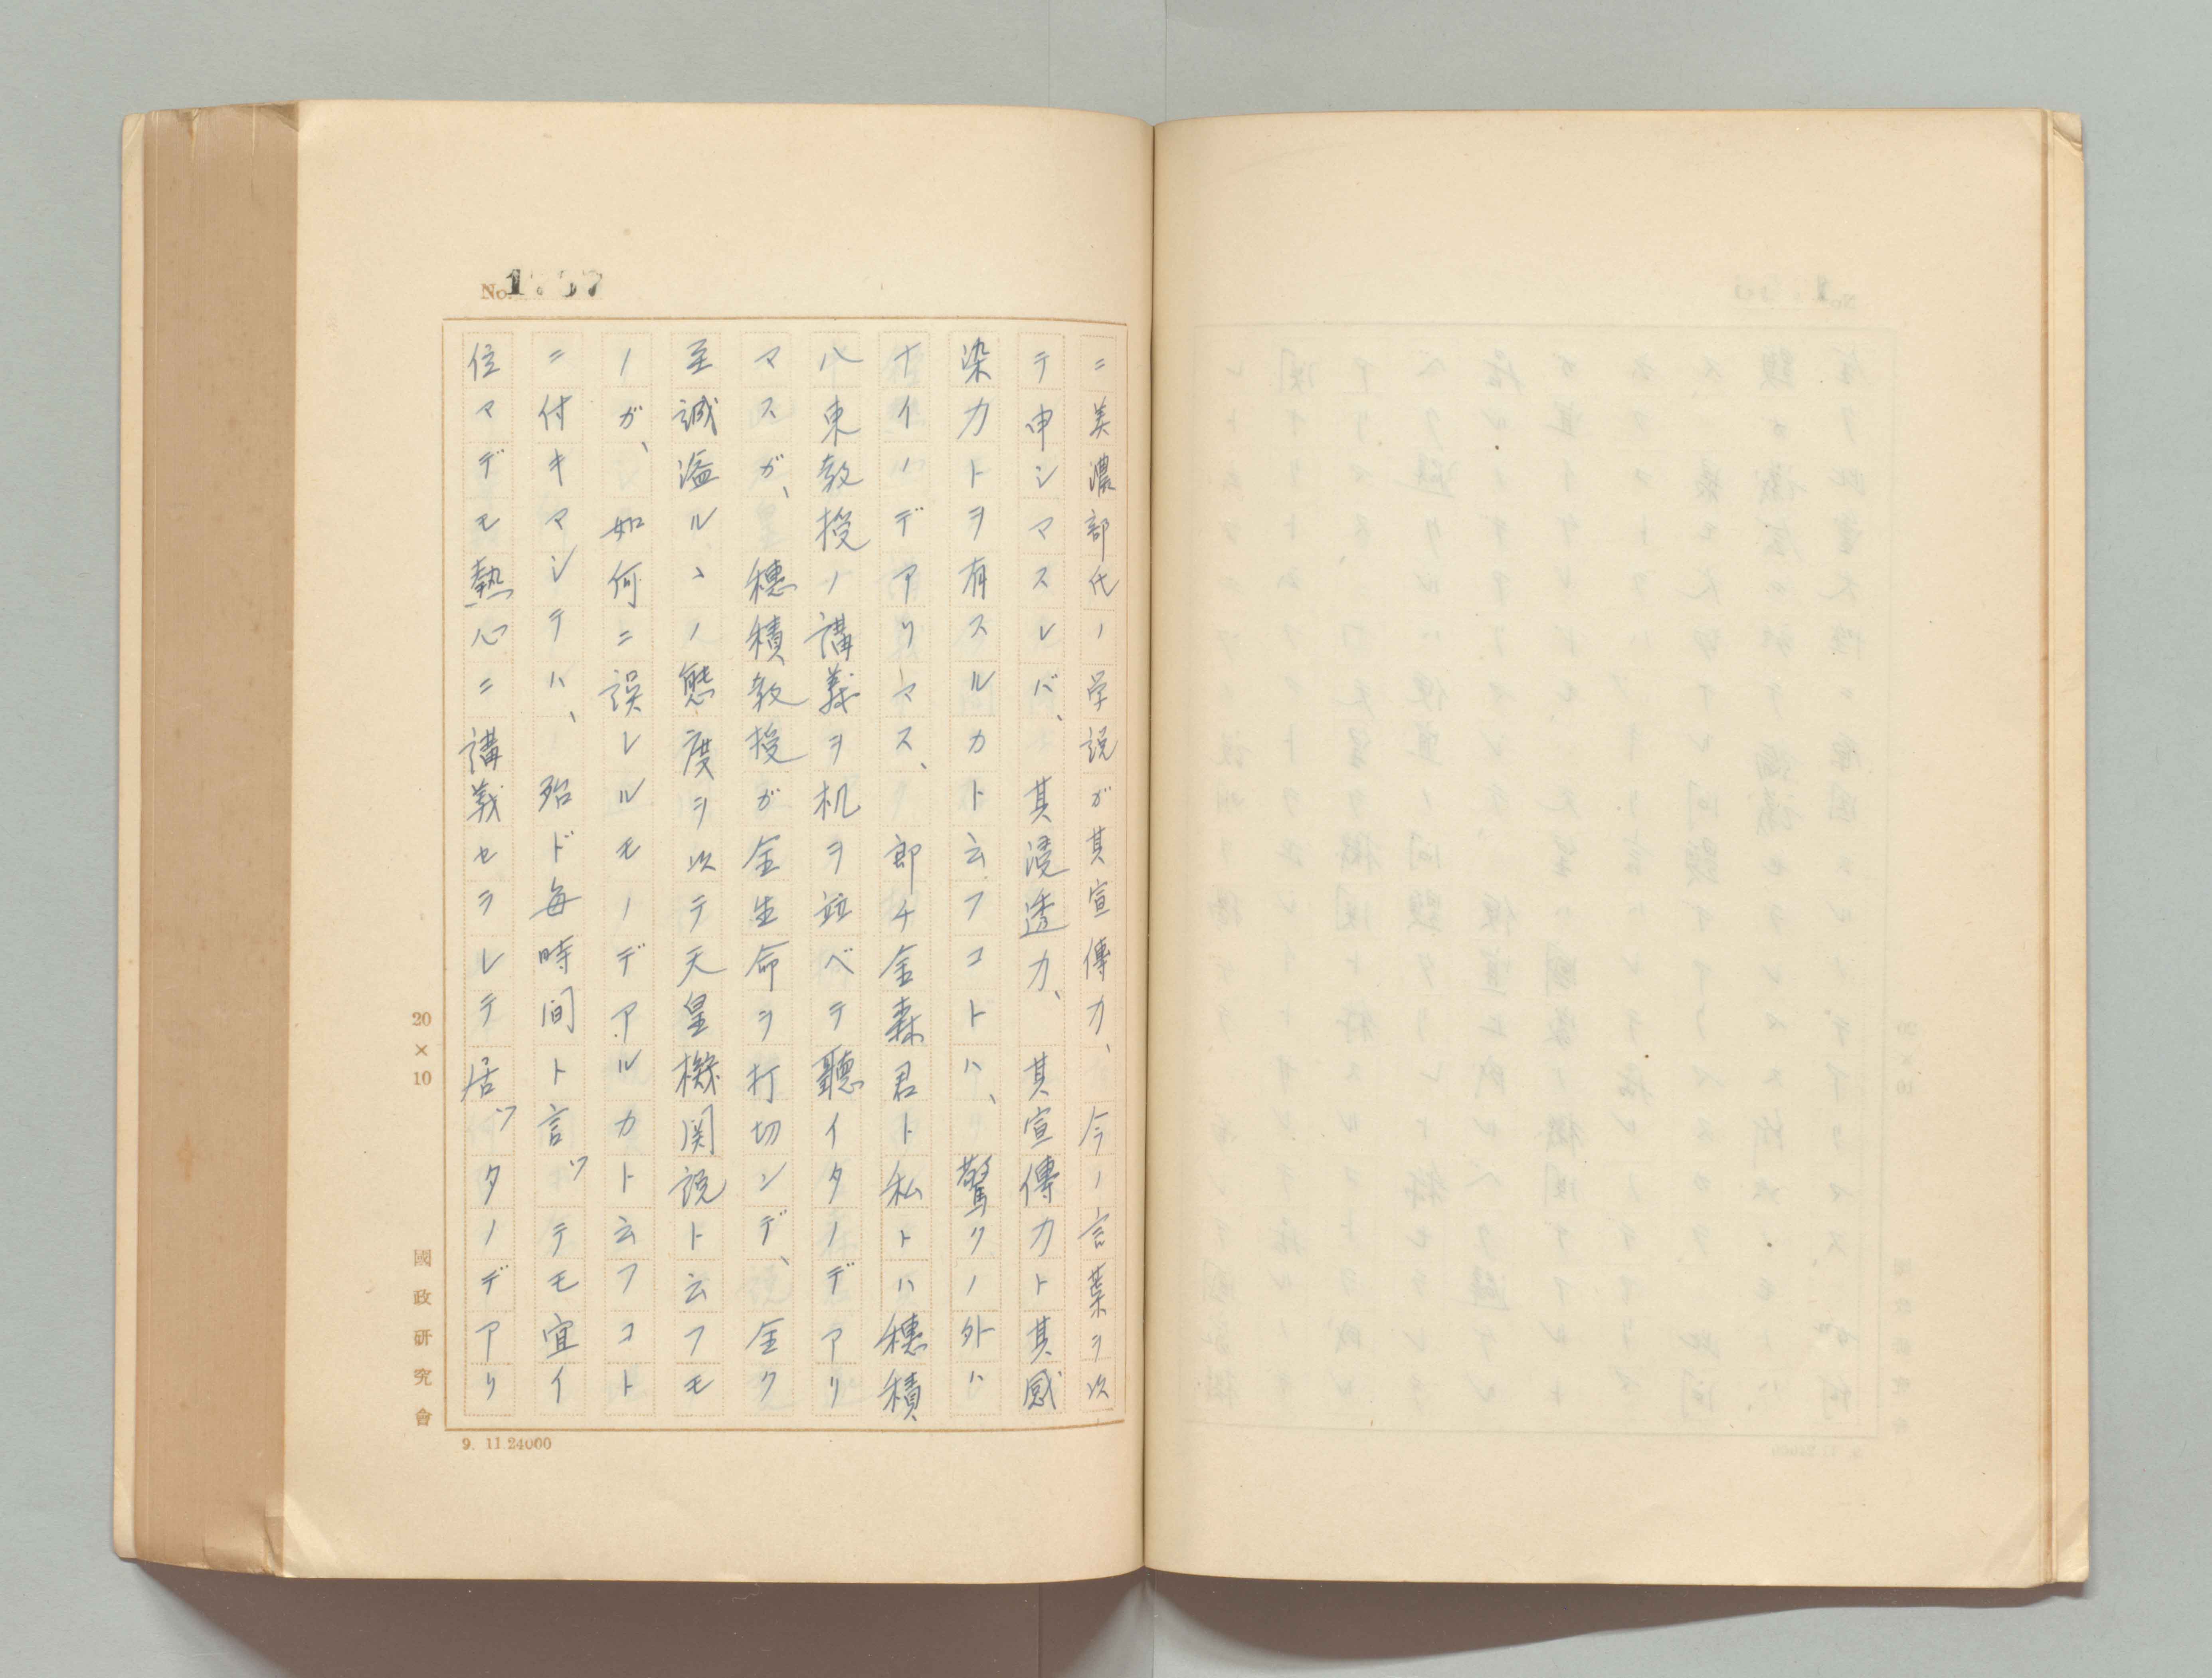 ニ美濃部氏ノ学説ガ其宣傳力、今ノ言葉ヲ以
テ申シマスレバ、其浸透力、其宣傳力ト其感
染力トヲ有スルカト云フコトハ、驚クノ外ハ
ナイノデアリマス、即チ金森君ト私トハ穗積
八束教授ノ講義ヲ机ヲ竝ベテ聽イタノデアリ
マスガ、穗積教授ガ全生命ヲ打切ンデ、全ク
至誠溢ルヽノ態度ヲ以テ天皇機関説ト云フモ
ノガ、如何ニ誤レルモノデアルカト云フコト
ニ付キマシテハ、殆ド毎時間ト言ツテモ宜イ
位マデモ熱心ニ講義セラレテ居ツタノデアリ
20×10
國政研究會
9. 11.24000